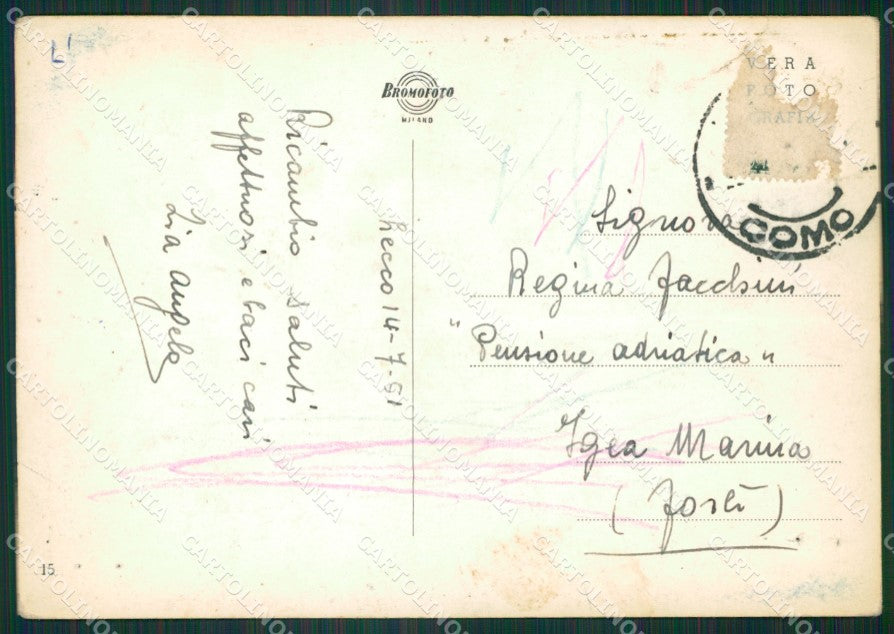 L'
BROMOFOTO
MILANO
VERA
FOTO
GRAFIA
COMO
Lecco 14-7-51
Ricambio saluti
affettuosi e baci cari
Zia Angela
Signora
Regina Facchini
"Pensione Adriatica"
Igea Marina
(Forlì)
15
CARTOLINOMANIA